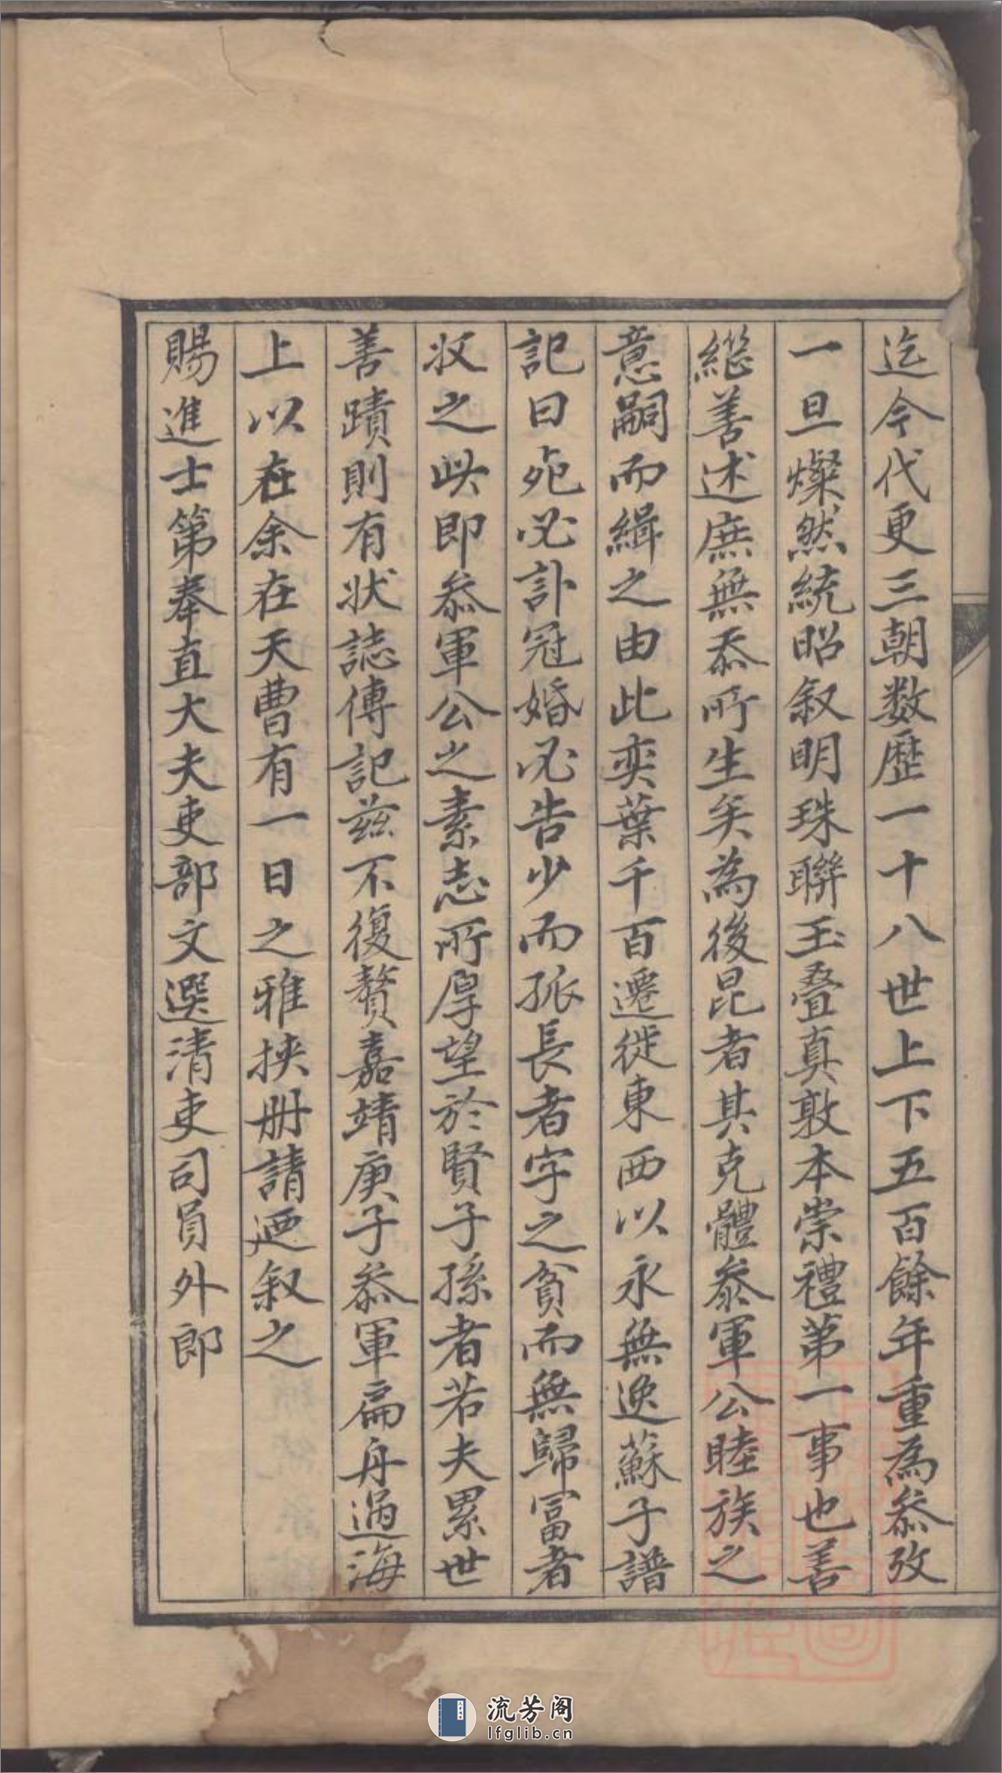 迄今代更三朝数歷一十八世上下五百餘年重為叅攷
一旦燦然統昭叙明珠聯玉叠真敦本崇禮第一事也善
繼善述庶無忝所生矣為後昆者其克體叅軍公睦族之
意嗣而緝之由此奕葉千百遷徙東西以永無逸蘇子譜
記曰死必訃冠婚必告少而孤長者字之貧而無歸冨者
收之此即叅軍公之素志所厚望於賢子孫者若夫累世
善蹟則有状誌傳記茲不復贅嘉靖庚子叅軍扁舟過海
上以在余在天曹有一日之雅挾册請迺叙之
賜進士第奉直大夫吏部文選清吏司員外郎
流芳阁
lfglib.cn